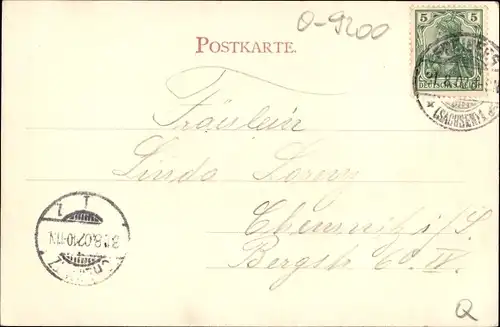 O-9200
POSTKARTE.
5 5
DEUTSCHES REICH
(SACHSEN)
Fräulein
Linda Lorenz
Chemnitz i/S.
Bergstr 60. IV.
1
31.8.02.10-11.V.
Q